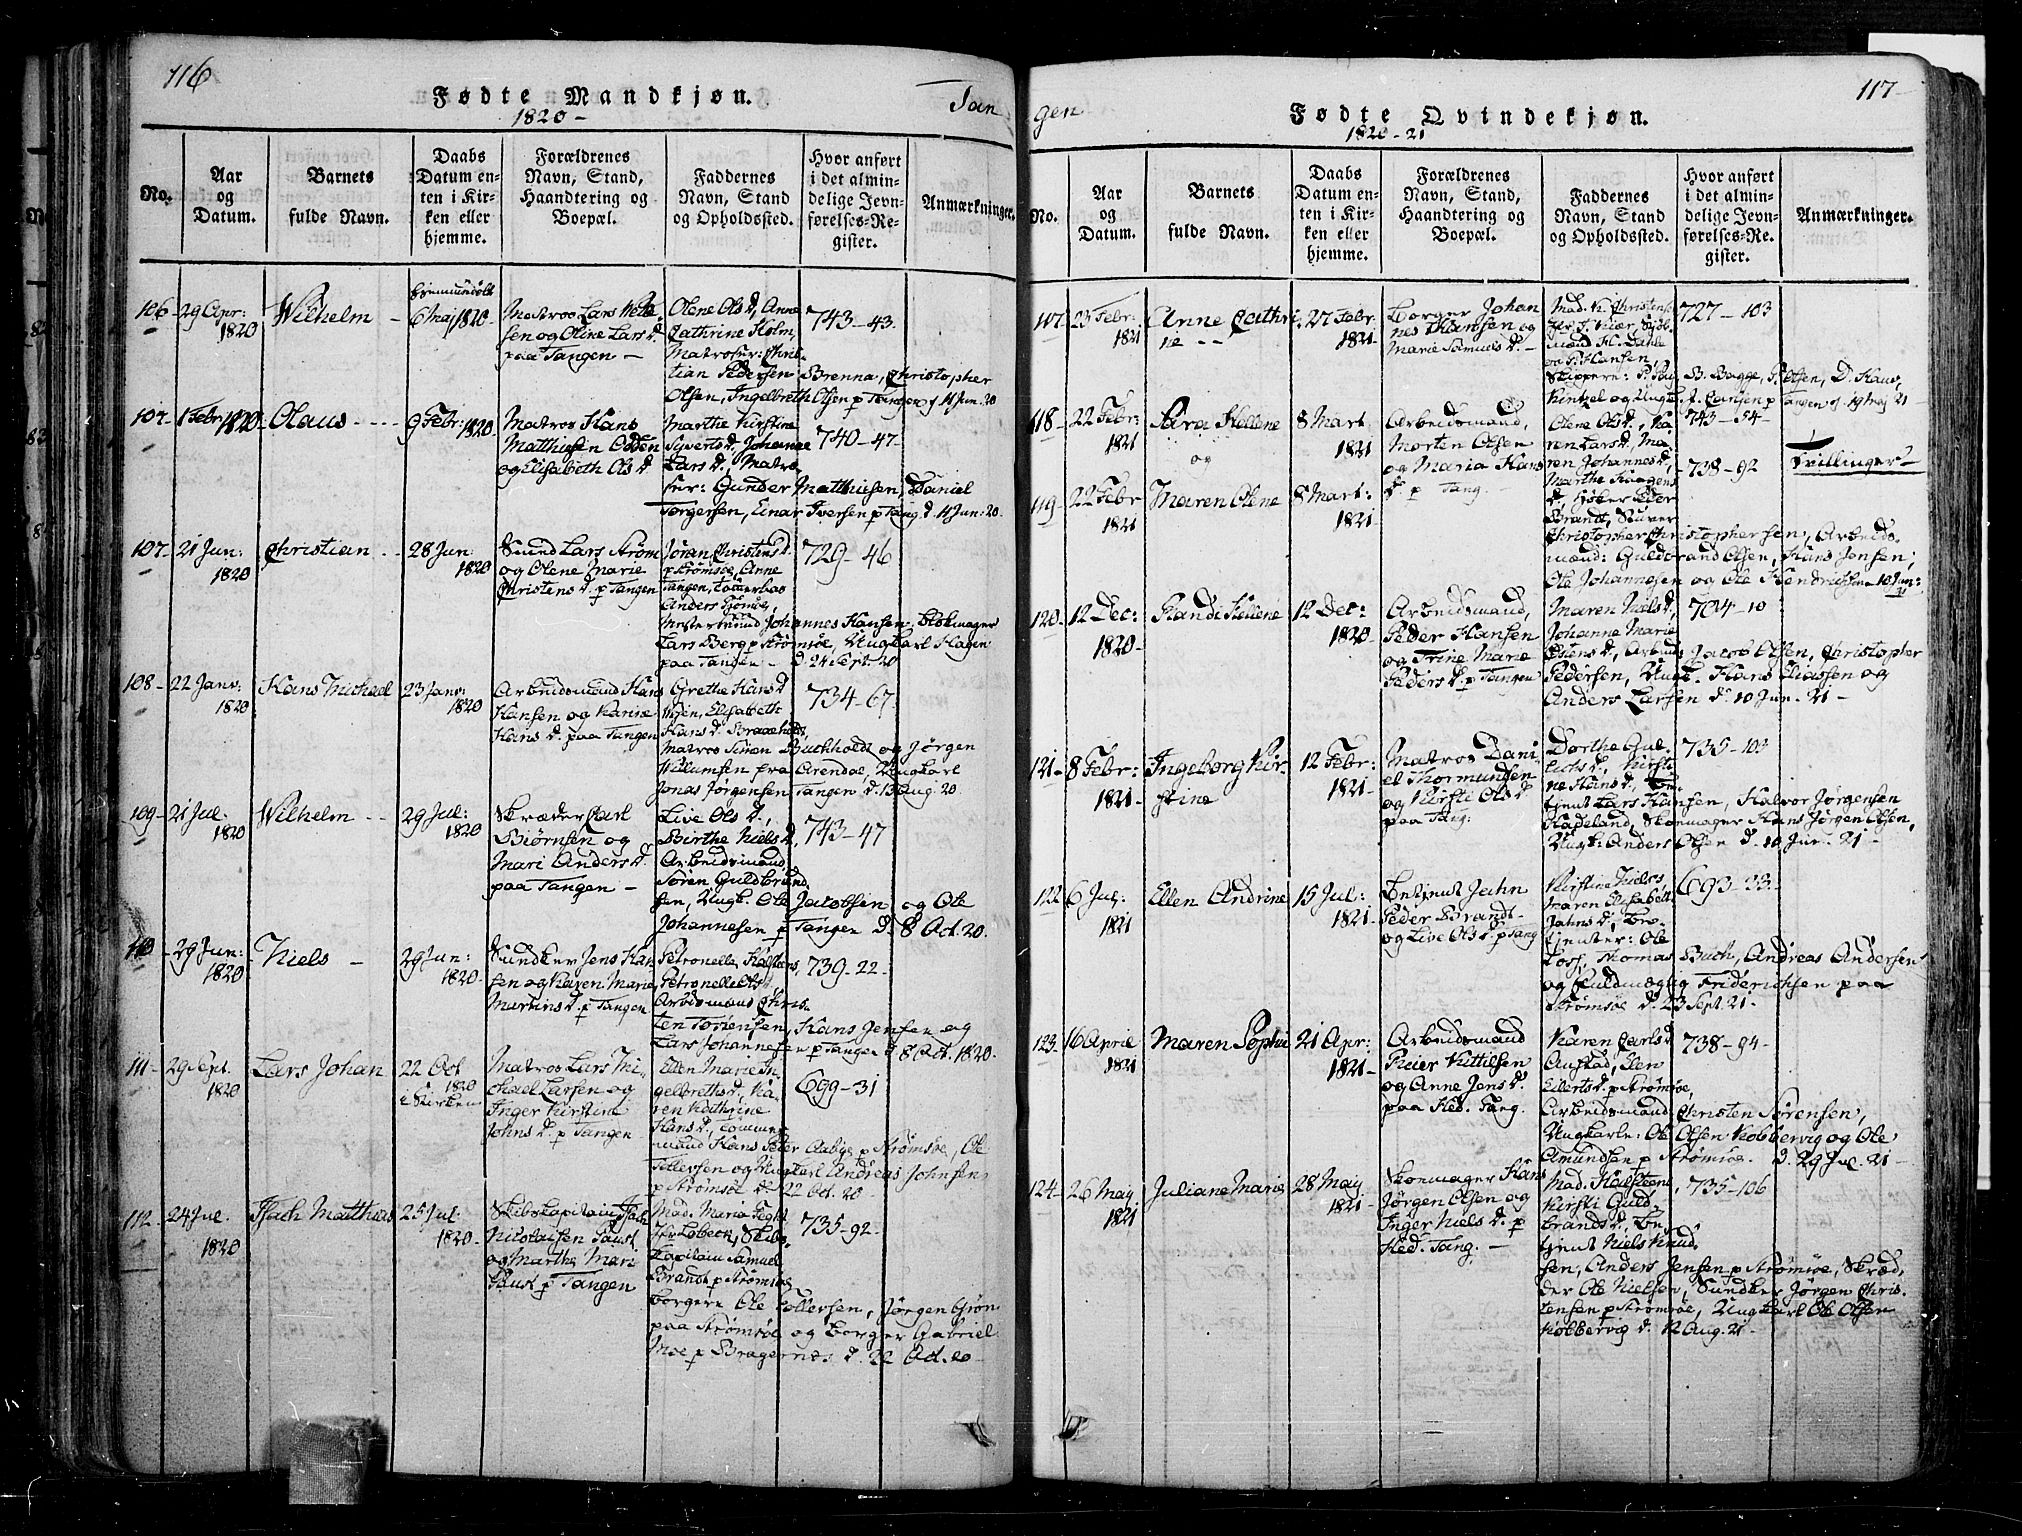 116
Fødte Mandkjøn.
1820-
Tan
No.
Aar og Datum.
Barnets fulde Navn.
Daabs Datum enten i Kirken eller hjemme.
Forældrenes Navn, Stand, Haandtering og Boepæl.
Faddernes Navn, Stand og Opholdssted.
Hvor anført i det almindelige Jevnførelses-Register.
Anmærkninger.
106
29 Apr:
1820
Wilhelm
hjemmedøbt
6 Maj 1820
Matros Lars
sen og Oline Lars d.
paa Tangen
Olene Ols d, Anne
Cathrine Holm,
Matroser: Chris-
tian Pedersen Brenna, Christopher
Olsen, Ingelbreth Olsen p Tangen d. 11 Jun. 20
743-43.
107
1 Febr 1820
Olaus
9 Febr: 1820
Matros Hans
Matthisen Odden
og Elisabeth Ols d.
Marthe Kirstine
Syverts d. Johanne
Lars d., Matro-
ser: Gunder Matthisen, Daniel
Torgersen, Einar Iversen p Tang. d. 11 Jun: 20.
740-47-
107-
21 Jun:
1820
Christian
28 Jun:
1820
Sund Lars Strøm
og Olene Marie
Christens d. p Tangen
Jøran Christens d.
p Strømsøe, Anne
Tangen,
Anders
Johannes Hansen, Blokmager
Lars Berg p Strømsøe, Ungkarl Hagen
paa Tangen - d. 24 Sept. 20
729-46
108-
22 Janv:
1820
Hans Michael
23 Janv:
1820
Arbeidsmand Hans
Hansen og Karine
Hans d. paa Tangen
Grethe Hans d
Elisabeth
Hans d.
Matros Simen Buchholdt og Jørgen
Willumsen fra Arendal, Ungkarl
Jonas Jørgensen Tangen d. 13 Aug. 20
734-67.
109-
21 Jul.
1820
Wilhelm
29 Jul:
1820
Skræder Carl
Biørnsen og
Mari Anders d.
paa Tangen
Live Ols d.,
Birthe Niels d.
Arbeidsmand
Søren Guldbrand
sen, Ungk. Ole Jacobsen og Ole
Johannesen p Tangen d. 8 Oct. 20.
743-47
110
29 Jun:
1820
Niels
29 Jun:
1820
Sundker Jens Han
sen og Karen Marie
Martins d. p Tangen
Petronelle
Petronelle Ols
Arbeidsmand Chris-
ten Torensen, Hans Jensen og
Lars Johannesen p Tangen d 8 Oct. 1820.
739-22-
111-
29 Sept.
1820
Lars Johan
22 Oct
1820
i Kirken
Matros Lars Mi-
chael Larsen og
Inger Kirstine
Johns d. p Tangen
Ellen Marie In-
gelbreths d., Ka-
ren Kathrine
Hans d.,
mand Hans Peter Aabye p Strømsøe, Ole
Tollersen og Ungkarl Andreas Johnsen
p Strømsøe d. 22 Oct. 20
699-31
112.
24 Jul.
1820
Isach Matthias
25 Jul
1820
Skibskapitain Isach
Nicolaisen Faust
og Marthe Mari
Faust p Tangen
Mad. Maria
Hr. Lobeck, Skibs-
kapitain Samuel
Brandt p Strømsøe
Borgere Ole Tollersen, Jørgen Grøn
paa Strømsøe og Borger Gabriel
Moe p Bragernes d. 22 Oct. 20
735-92.
117
gen
Fødte Qvindekjøn.
1820-21
No.
Aar og Datum.
Barnets fulde Navn.
Daabs Datum enten i Kirken eller hjemme.
Forældrenes Navn, Stand, Haandtering og Boepæl.
Faddernes Navn, Stand og Opholdssted.
Hvor anført i det almindelige Jevnførelses-Re. gister.
Anmærkninger.
117
23 Febr:
1821
Anne Cathri-
ne
27 Febr
1821
Borger Johan
nes Hansen og
Marie Samuels d.
Mad.
Kiær,
H. Dahle
og P. Hansen,
Skippere: B. Bagge, P. Olsen, D. Haus,
727-103
118
22 Febr:
1821
Sara Hellene
og
8 Mart
1821
Arbeidsmand,
Morten Olsen
og Maria Hans
d. p Tang.
Olene Ols d., Ka-
ren Lars d., Ma-
ren Johannes d.,
Marthe Haagens
d., Høker Peder
Brandt,
Christopher Christophersen, Arbeids-
mænd: Guldbrand Olsen, Hans Jensen;
Ole Johannesen og Ole Hendrichsen 10 Jun: 21
743-54-
119
22 Febr
1821
Maren Olene
8 Mart:
1821
738-92
Tvillinger
120
12 Dec:
1820
Randi Hellene
12 Dec:
1820
Arbeidsmand,
Peder Hansen
og Trine Marie
Peders d. p Tangen
Maren Niels d.,
Johanne Marie
Jacob Olsen, Christopher
Pedersen, Ungk. Hans Eliassen og
Anders Larsen d. 10 Jun. 21
704-10
121
8 Febr:
1821
Ingeborg Kir-
stine
12 Febr:
1821
Matros Dani
el Thormundsen
og Kirsti Ols d.
paa Tang:
Dorthe Gul-
Kirsti-
ne Hans d., Be-
tjent Lars Hansen, Halvor Jørgensen
Hadeland, Skomager Hans Jørgen Olsen,
Ungk: Anders Olsen d. 10 Jun. 21
735-103
122
6 Jul:
1821
Ellen Andrine
15 Jul:
1821
Betjent Jahn
Peder Brandt
og Live Ols d. p Tang
Kirstine Niels
Maren Elisabeth
Jahns d., Be-
tjenter: Ole
Foss, Thomas Buch, Andreas Andersen
og Fuldmægtig Friderichsen paa
Strømsøe d. 23 Sept. 21
693-33-
123
16 April
1821
Maren Sophie
21 Apr:
1821
Arbeidsmand
Reier Kittilsen
og Anne Jens d.
paa Ned. Tang.
Karen Carls d
Austad, Elen
Eilerts d. p Strømsøe,
Arbeidsmand Christen Sørensen,
Ungkarle: Ole Olsen Kobbervig og Ole
Amundsen p Strømsøe. d. 29 Jul. 21
738-94-
124
26 May
1821
Juliane Marie
28 May
1821
Skomager Hans
Jørgen Olsen og
Inger Niels d. p
Ned. Tang.
Mad.
Kirsti Guld-
brands d., Be-
tjent Niels Knud-
sen, Anders Jensen p Strømsøe, Skræd-
der Ole Nielsen, Sundker Jørgen Chris-
tensen p Strømsøe, Ungkarl Ole Olsen
Kobbervig d. 12 Aug. 21
735-106